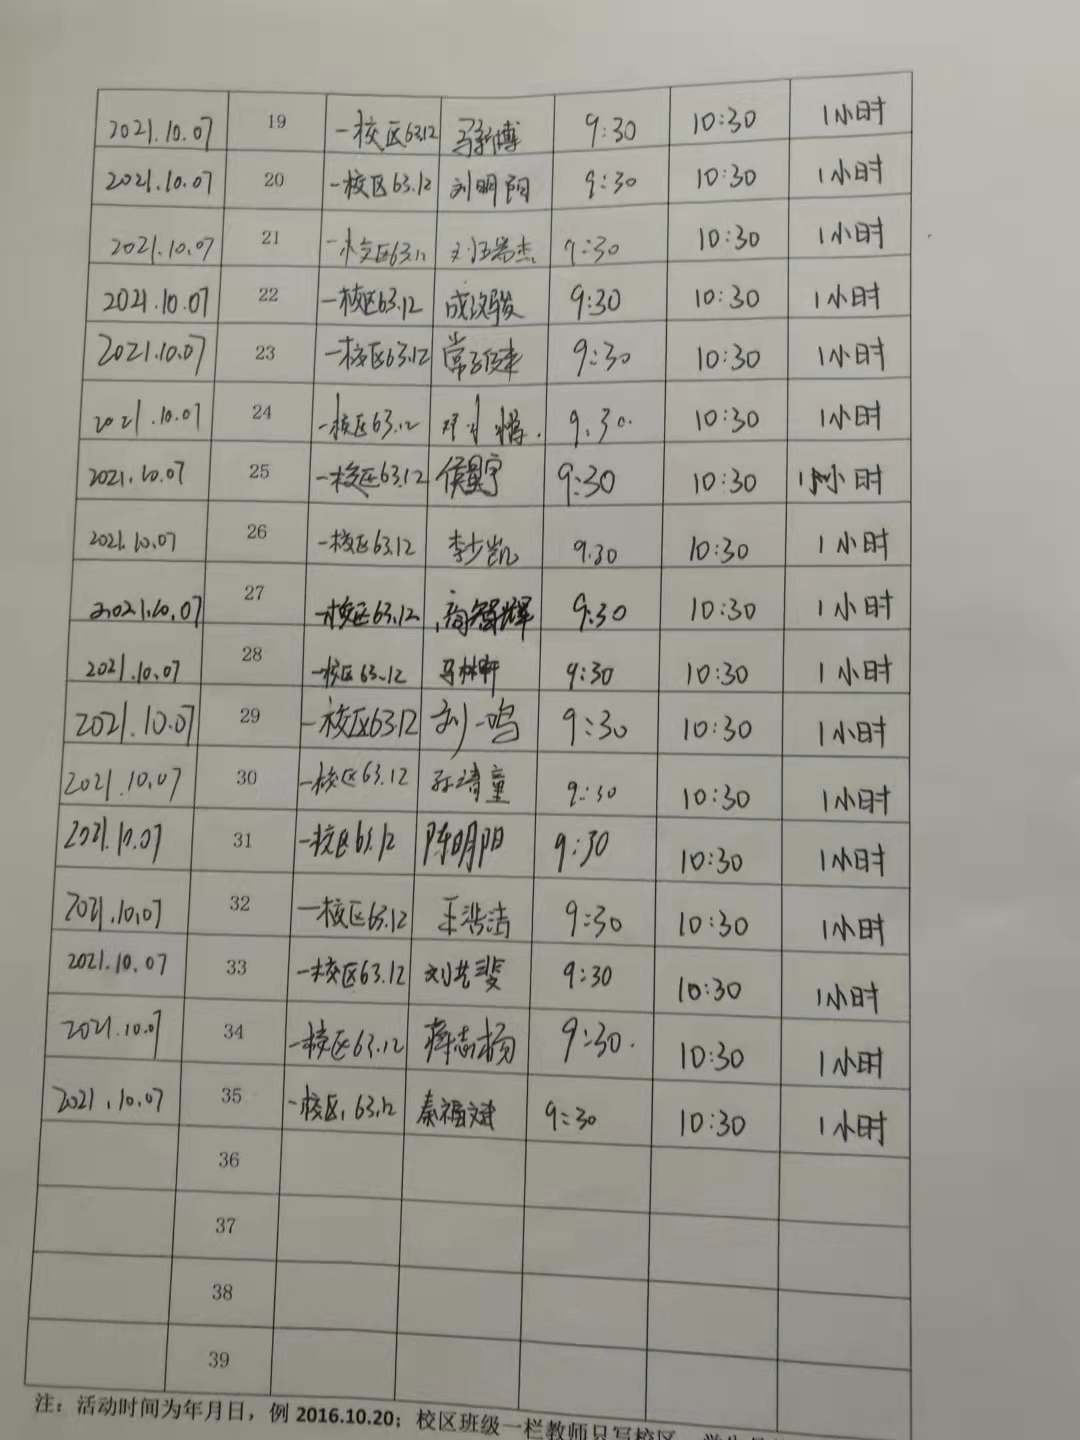 2021.10.07 19 一校区63.12 马新博 9:30 10:30 1小时
2021.10.07 20 一校区63.12 刘明阳 9:30 10:30 1小时
2021.10.07 21 一校区63.12 9:30 10:30 1小时
2021.10.07 22 一校区63.12 成汶骏 9:30 10:30 1小时
2021.10.07 23 一校区63.12 9:30 10:30 1小时
2021.10.07 24 一校区63.12 9:30 10:30 1小时
2021.10.07 25 一校区63.12 9:30 10:30 小时
2021.10.07 26 一校区63.12 李少凯 9:30 10:30 1小时
2021.10.07 27 一校区63.12 9:30 10:30 1小时
2021.10.07 28 一校区63.12 马林轩 9:30 10:30 1小时
2021.10.07 29 一校区63.12 刘一鸣 9:30 10:30 1小时
2021.10.07 30 一校区63.12 9:30 10:30 1小时
2021.10.07 31 一校区63.12 陈明阳 9:30 10:30 1小时
2021.10.07 32 一校区63.12 9:30 10:30 1小时
2021.10.07 33 一校区63.12 9:30 10:30 1小时
2021.10.07 34 一校区63.12 蒋志杨 9:30. 10:30 1小时
2021.10.07 35 一校区63.12 秦福斌 9:30 10:30 1小时
36
37
38
39
注：活动时间为年月日，例 2016.10.20；校区班级一栏教师只写校区，学生